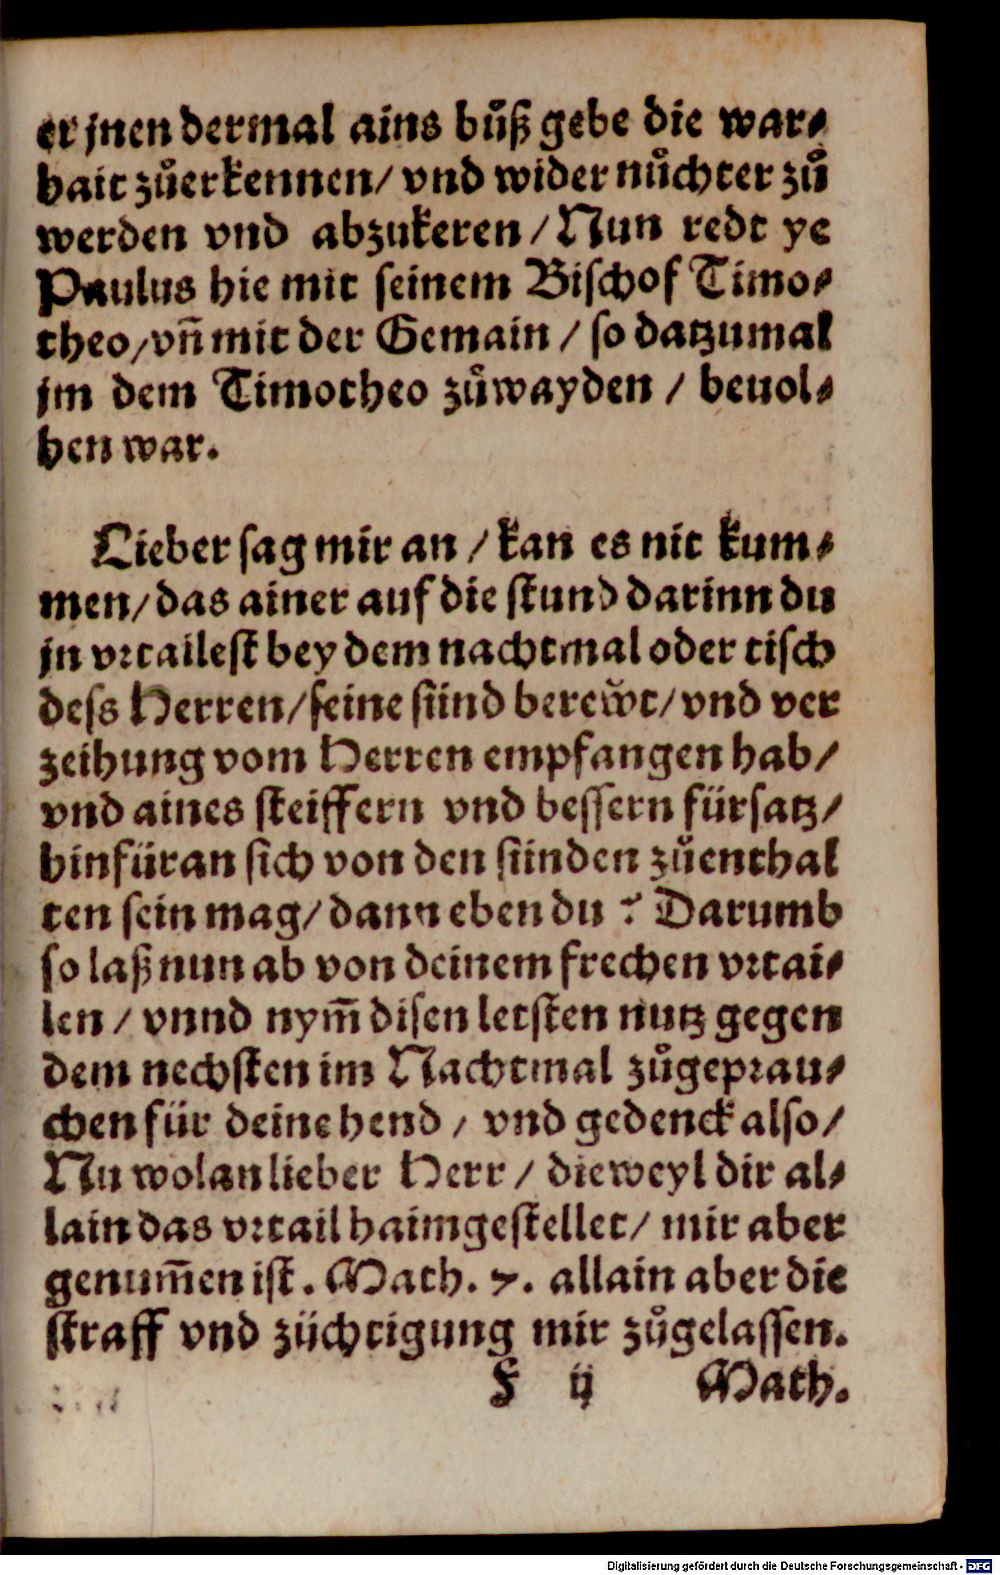 er jnen dermal ains bůß gebe die war⸗
hait zůerkennen/ vnd wider nůchter zů
werden vnd abzukeren/ Nun redt ye
Paulus hie mit seinem Bischof Timo⸗
theo/ vñ mit der Gemain / so datzumal
jm dem Timotheo zůwayden / beuol⸗
hen war.
Lieber sag mir an / kan es nit kum⸗
men/ das ainer auf die stund darinn du
jn vrtailest bey dem nachtmal oder tisch
dess Herren/ seine sünd berewͦt/ vnd ver
zeihung vom Herren empfangen hab/
vnd aines steiffern vnd bessern fürsatz/
hinfüran sich von den sünden zůenthal
ten sein mag/ dann eben du ? Darumb
so laß nun ab von deinem frechen vrtai⸗
len / vnnd nym̃ disen letsten nutz gegen
dem nechsten im Nachtmal zůgeprau⸗
chen für deine hend / vnd gedenck also/
Nu wolan lieber Herr / dieweyl dir al⸗
lain das vrtail haimgestellet/ mir aber
genum̃en ist. Math. 7. allain aber die
straff vnd züchtigung mir zůgelassen.
F ij Math.
Digitalisierung gefördert durch die Deutsche Forschungsgemeinschaft - DFG